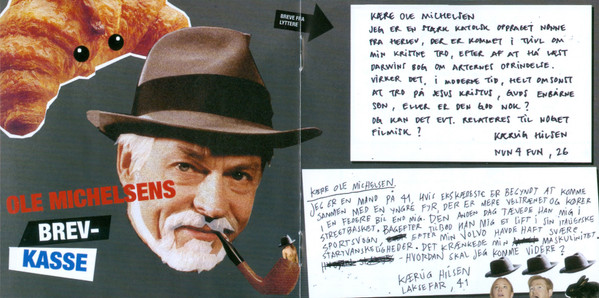 BREVE FRA
LYTTERE
KÆRE OLE MICHELSEN
JEG ER EN STÆRK KATOLSK OPDRAGET NONNE
FRA HERLEV, DER ER KOMMET I TVIVL OM
MIN KRISTNE TRO, EFTER AF AT HA LÆST
DARWINS BOG OM ARTERNES OPRINDELSE.
VIRKER DET, I MODERNE TID, HELT OMSONST
AT TRO PÅ JESUS KRISTUS, GUDS ENBÅRNE
SØN, ELLER ER DEN GOD NOK?
OG KAN DET EVT. RELATERES TIL NOGET
FILMISK?
KÆRLIG HILSEN
NUN 4 FUN, 26
OLE MICHELSENS
BREV-
KASSE
KÆRE OLE MICHELSEN.
JEG ER EN MAND PÅ 41, HVIS EKSKÆRESTE ER BEGYNDT AT KOMME
SAMMEN MED EN YNGRE FYR, DER ER MERE VELTRÆNET OG KØRER
I EN FEDERE BIL END MIG. DEN ANDEN DAG TÆVEDE HAN MIG I
STREETBASKET. BAGEFTER TILBØD HAN MIG ET LIFT I SIN
SPORTSVOGN, EFTER MIN VOLVO HAVDE HAFT SVÆRE
STARTVANSKELIGHEDER. DET KRÆNKEDE MIN MASKULINITET.
- HVORDAN SKAL JEG KOMME VIDERE?
KÆRLIG HILSEN
LAKSEFAR, 41